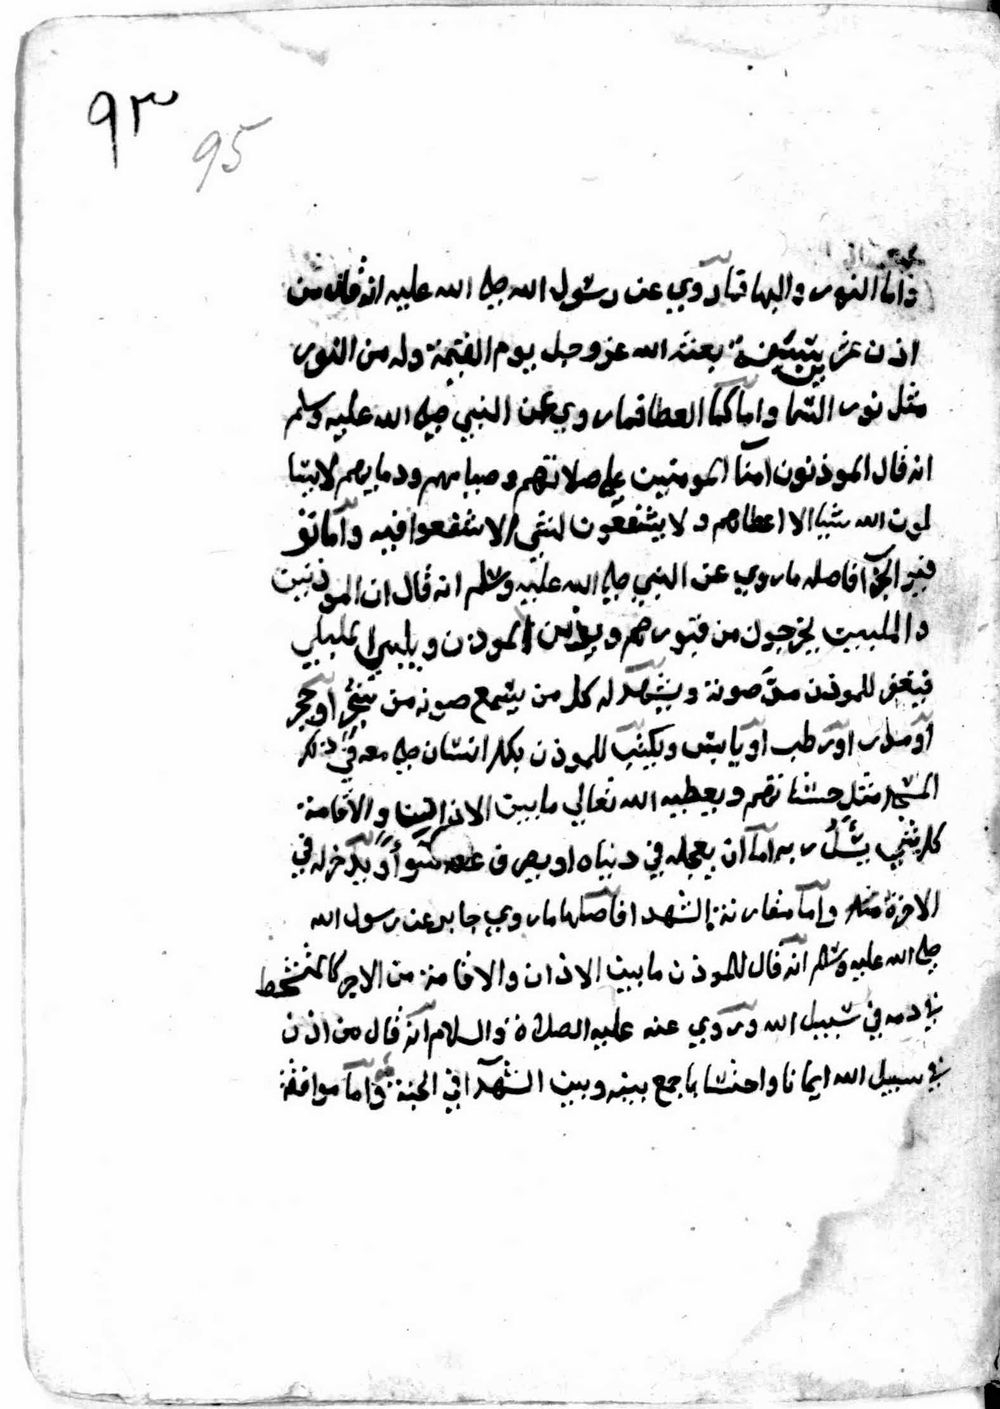 ٩٣
95
واما النور والبها فما روي عن رسول الله صلى الله عليه انه قال من
اذن عشر سنة بعثه الله عز وجل يوم القيمة وله من النور
مثل نور السما واما كما العطا فما روي عن النبي صلى الله عليه وسلم
انه قال الموذنون امنا المومنين على صلاتهم وصيامهم ودمايهم لا يسا
لون الله شيا الا اعطاهم ولا يشفعون لشي الا شفعوا فيه واما
الجزا فاصله ما روي عن النبي صلى الله عليه وسلم انه قال ان الموذنين
والملبين يخرجون من قبورهم ويوذن الموذن ويلبي الملبي
فيغفر للموذن مد صوته ويشهد له كل من يسمع صوته من شجر او حجر
او مدر او رطب او يابس ويكتب للموذن بكل انسان صلى معه في ذلك
المسجد مثل حسناتهم ويعطيه الله تعالي ما بين الاذان والاقامة
كل شي يسل ربه اما ان يعجله في دنياه او يصرف عنه سوأ او يدخر له في
الاخرة واما مقارنة الشهدا فاصلها ما روي جابر عن رسول الله
صلى الله عليه وسلم انه قال للموذن ما بين الاذان والاقامة من الاجر كالمتشحط
في دمه في سبيل الله وروي عنه عليه الصلاة والسلام انه قال من اذن
في سبيل الله ايمانا واحتسابا جمع بينه وبين الشهدا في الجنة واما موافقة